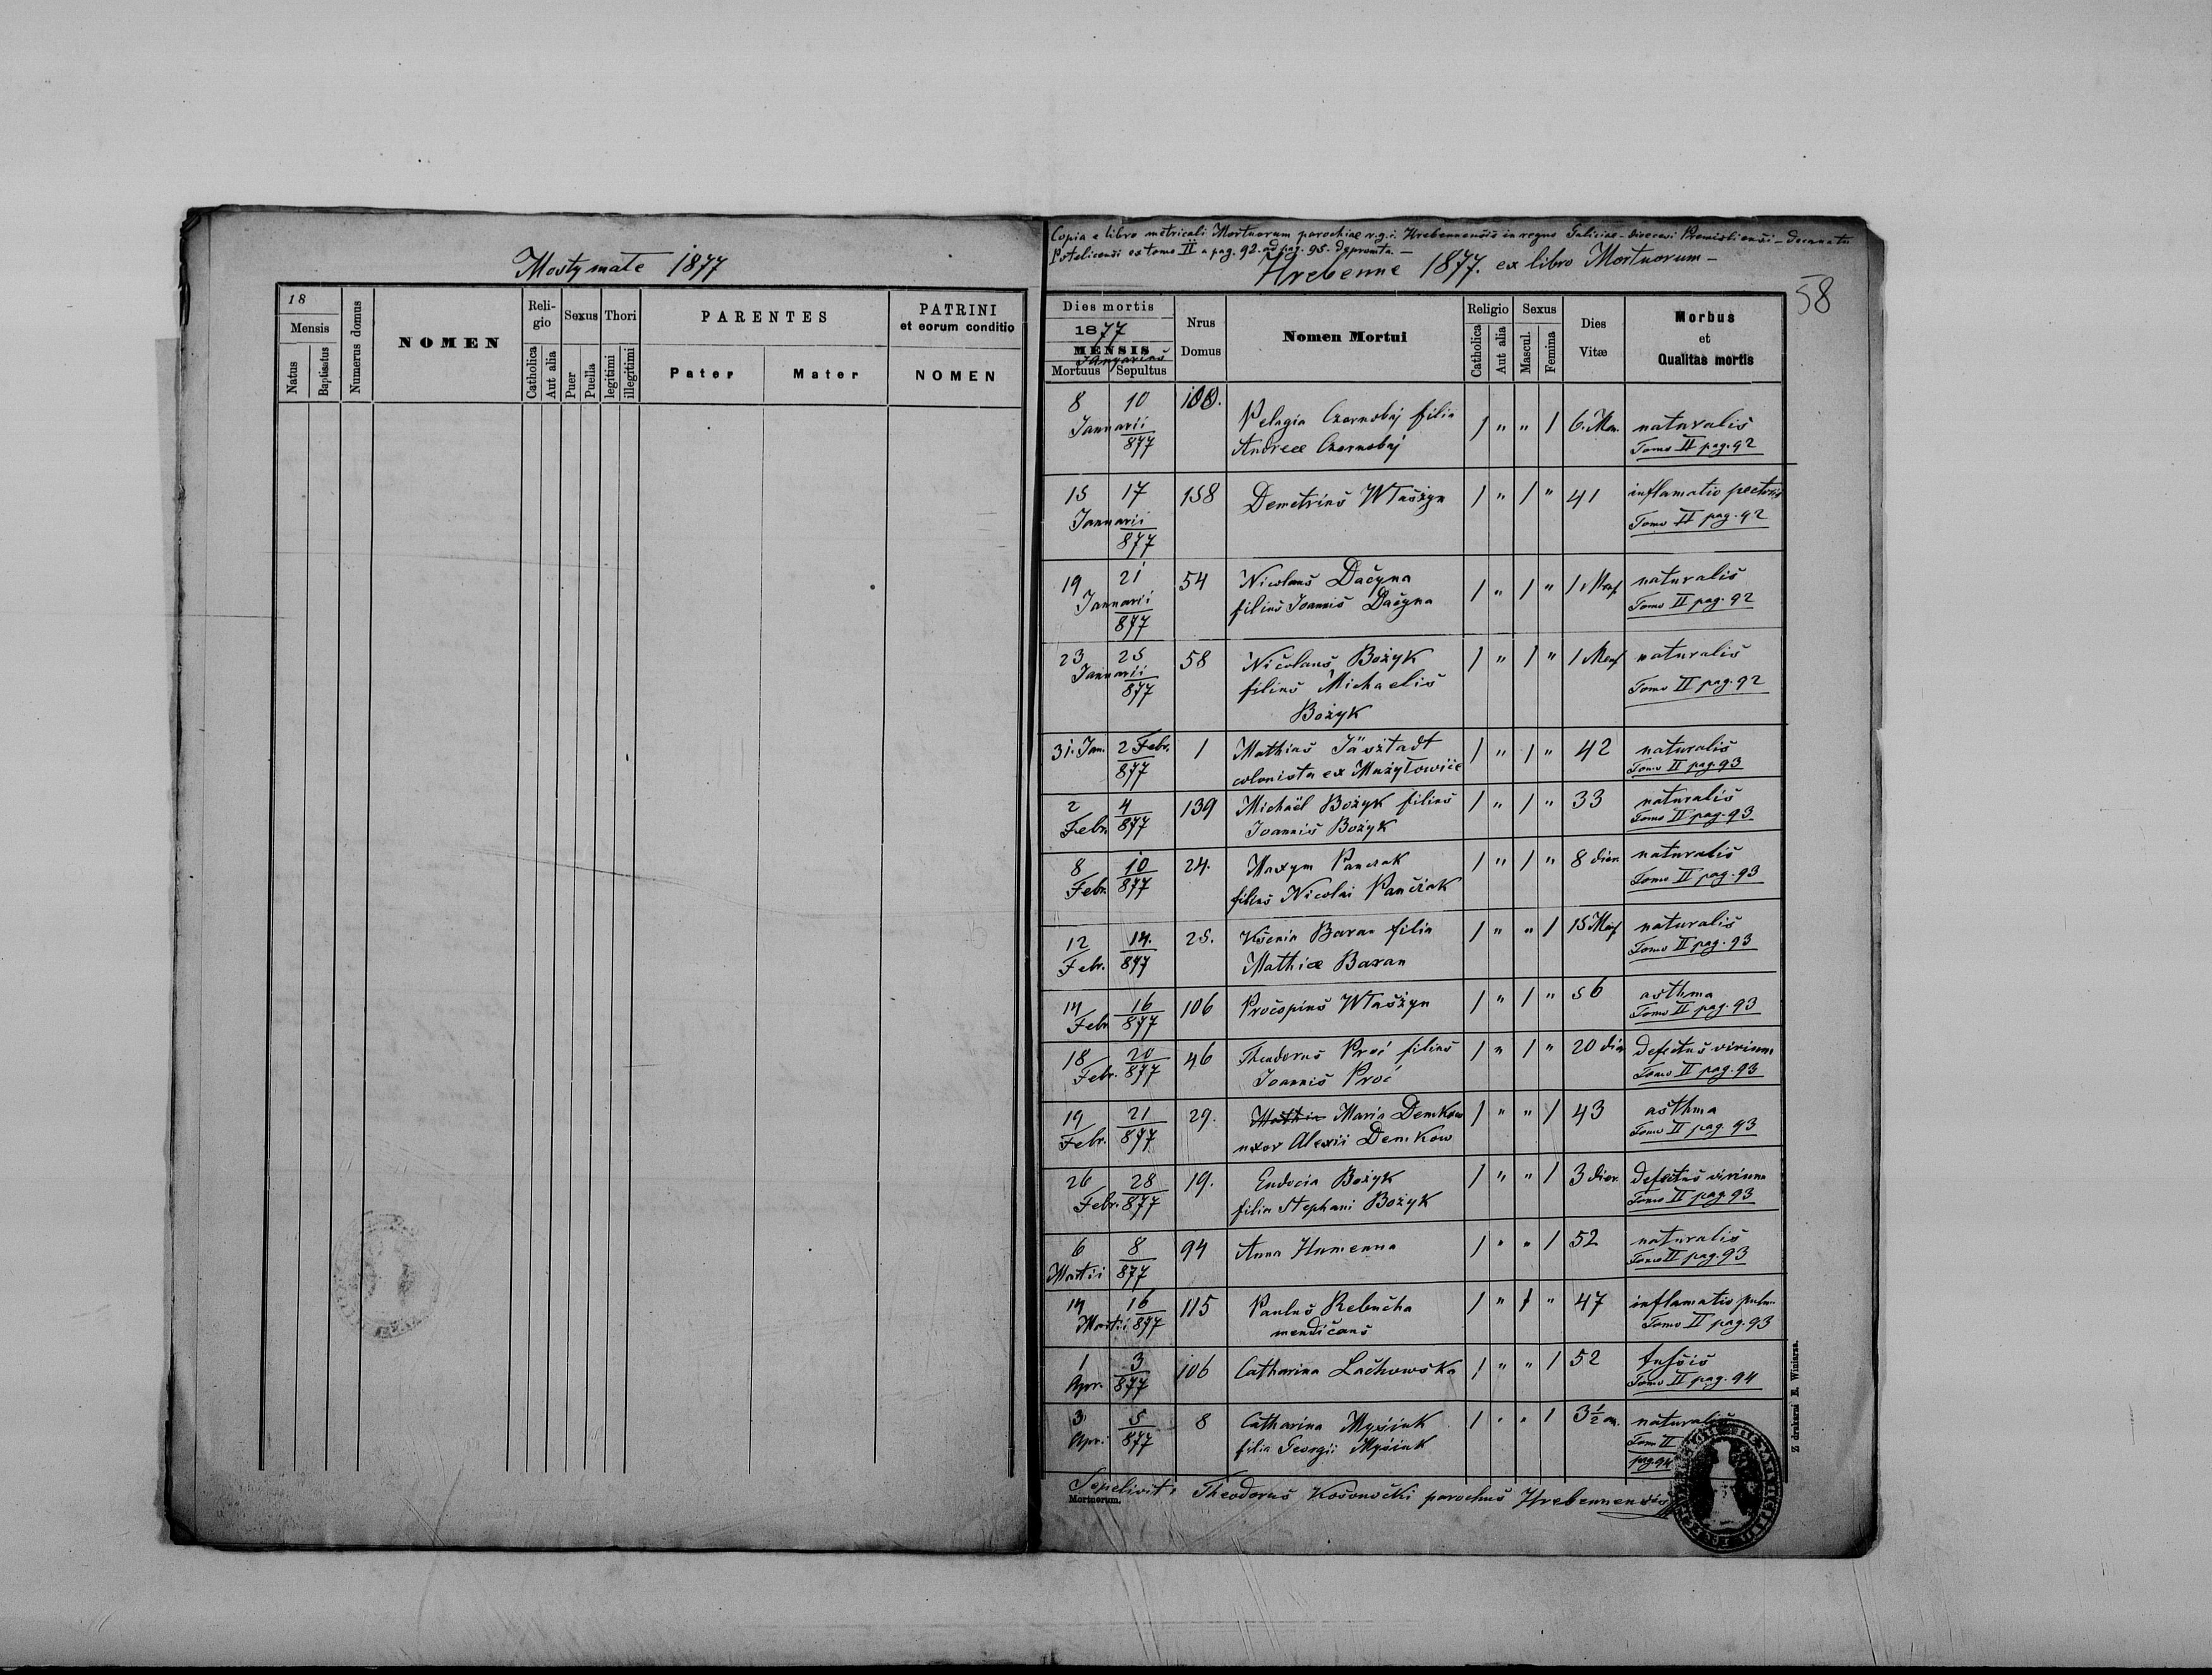 Mosty małe 1877
18
Mensis
Natus
Baptisatus
Numerus domus
NOMEN
Reli-
gio
Catholica
Aut alia
Sexus
Puer
Puella
Thori
legitimi
illegitimi
PARENTES
Pater
Mater
PATRINI
et eorum conditio
NOMEN
Copia e libro metricali Mortuorum parochiae r.g.i. Hrebennensis in regno Galiciae - dioecesi Premisliensi - decanatu
Potelicensi ex tomo II a pag. 92. ad pag. 95. deprompta. -
Hrebenne 1877. ex libro Mortuorum -
58
Dies mortis
1877
MENSIS
Januarius
Mortuus Sepultus
Nrus
Domus
Nomen Mortui
Religio
Catholica
Aut alia
Sexus
Mascul.
Femina
Dies
Vitæ
Morbus
et
Qualitas mortis
8 10 100.
Januarii
877
Pelagia Czornobaj filia
Andreæ Czornobaj
/ " " / 6. Men. naturalis
Tomo II pag. 92
15 17 158 Demetrius Właszyn / " / " 41 inflamatio pectoris
Januarii
877
Tomo II pag. 92
19 21 54 Nicolaus Dačyna / " / " naturalis
Januarii filius Joannis Dačyna Tomo II pag. 92
877
23 25 58 Nicolaus Bożyk / " / " 1 Mens naturalis
Januarii filius Michaelis Tomo II pag. 92
877
Bożyk
31. Jan. 2 Febr. 1 Mathias / " / " 42 naturalis
877 colonista ex Tomo II pag. 93
2 4 139 Michaël Bożyk filius / " / " 33 naturalis
Febr. 877 Joannis Bożyk Tomo II pag. 93
8 10 24. Maxym Panczak / " / " 8 dier. naturalis
Febr. 877 filius Nicolai Panczak Tomo II pag. 93
12 14. 25. Ksenia Baran filia / " " / 15 Mens naturalis
Febr. 877 Mathiæ Baran Tomo II pag. 93
14 16 106 Procopius Właszyn / " / " 56 asthma
Febr. 877 Tomo II pag. 93
18 20 46 Theodorus Proć filius / " / " 20 dier defectus virium
Febr. 877 Joannis Proć Tomo II pag. 93
19 21 29. Maria Demkow / " " / 43 asthma
Febr. 877 uxor Alexii Demkow Tomo II pag. 93
26 28 19. Eudocia Bożyk / " " / 3 dier. defectus virium
Febr. 877 filia Stephani Bożyk Tomo II pag. 93
6 8 94 Anna Humenna / " " / 52 naturalis
Martii 877 Tomo II pag. 93
14 16 115 Paulus Rebucha / " / " 47 inflamatio pulm.
Martii 877 mendicans Tomo II pag. 93
1 3 106 Catharina Lachowska / " " / 52 tussis
Apr. 877 Tomo II pag. 94
3 5 8 Catharina Mysiuk / " " / 3½ naturalis
Apr. 877 filia Georgii Mysiuk Tom II
pag. 94
Sepelivit: Theodorus Kosonocki parochus Hrebennensis
Mortuorum.
Z drukarni E. Winiarza.